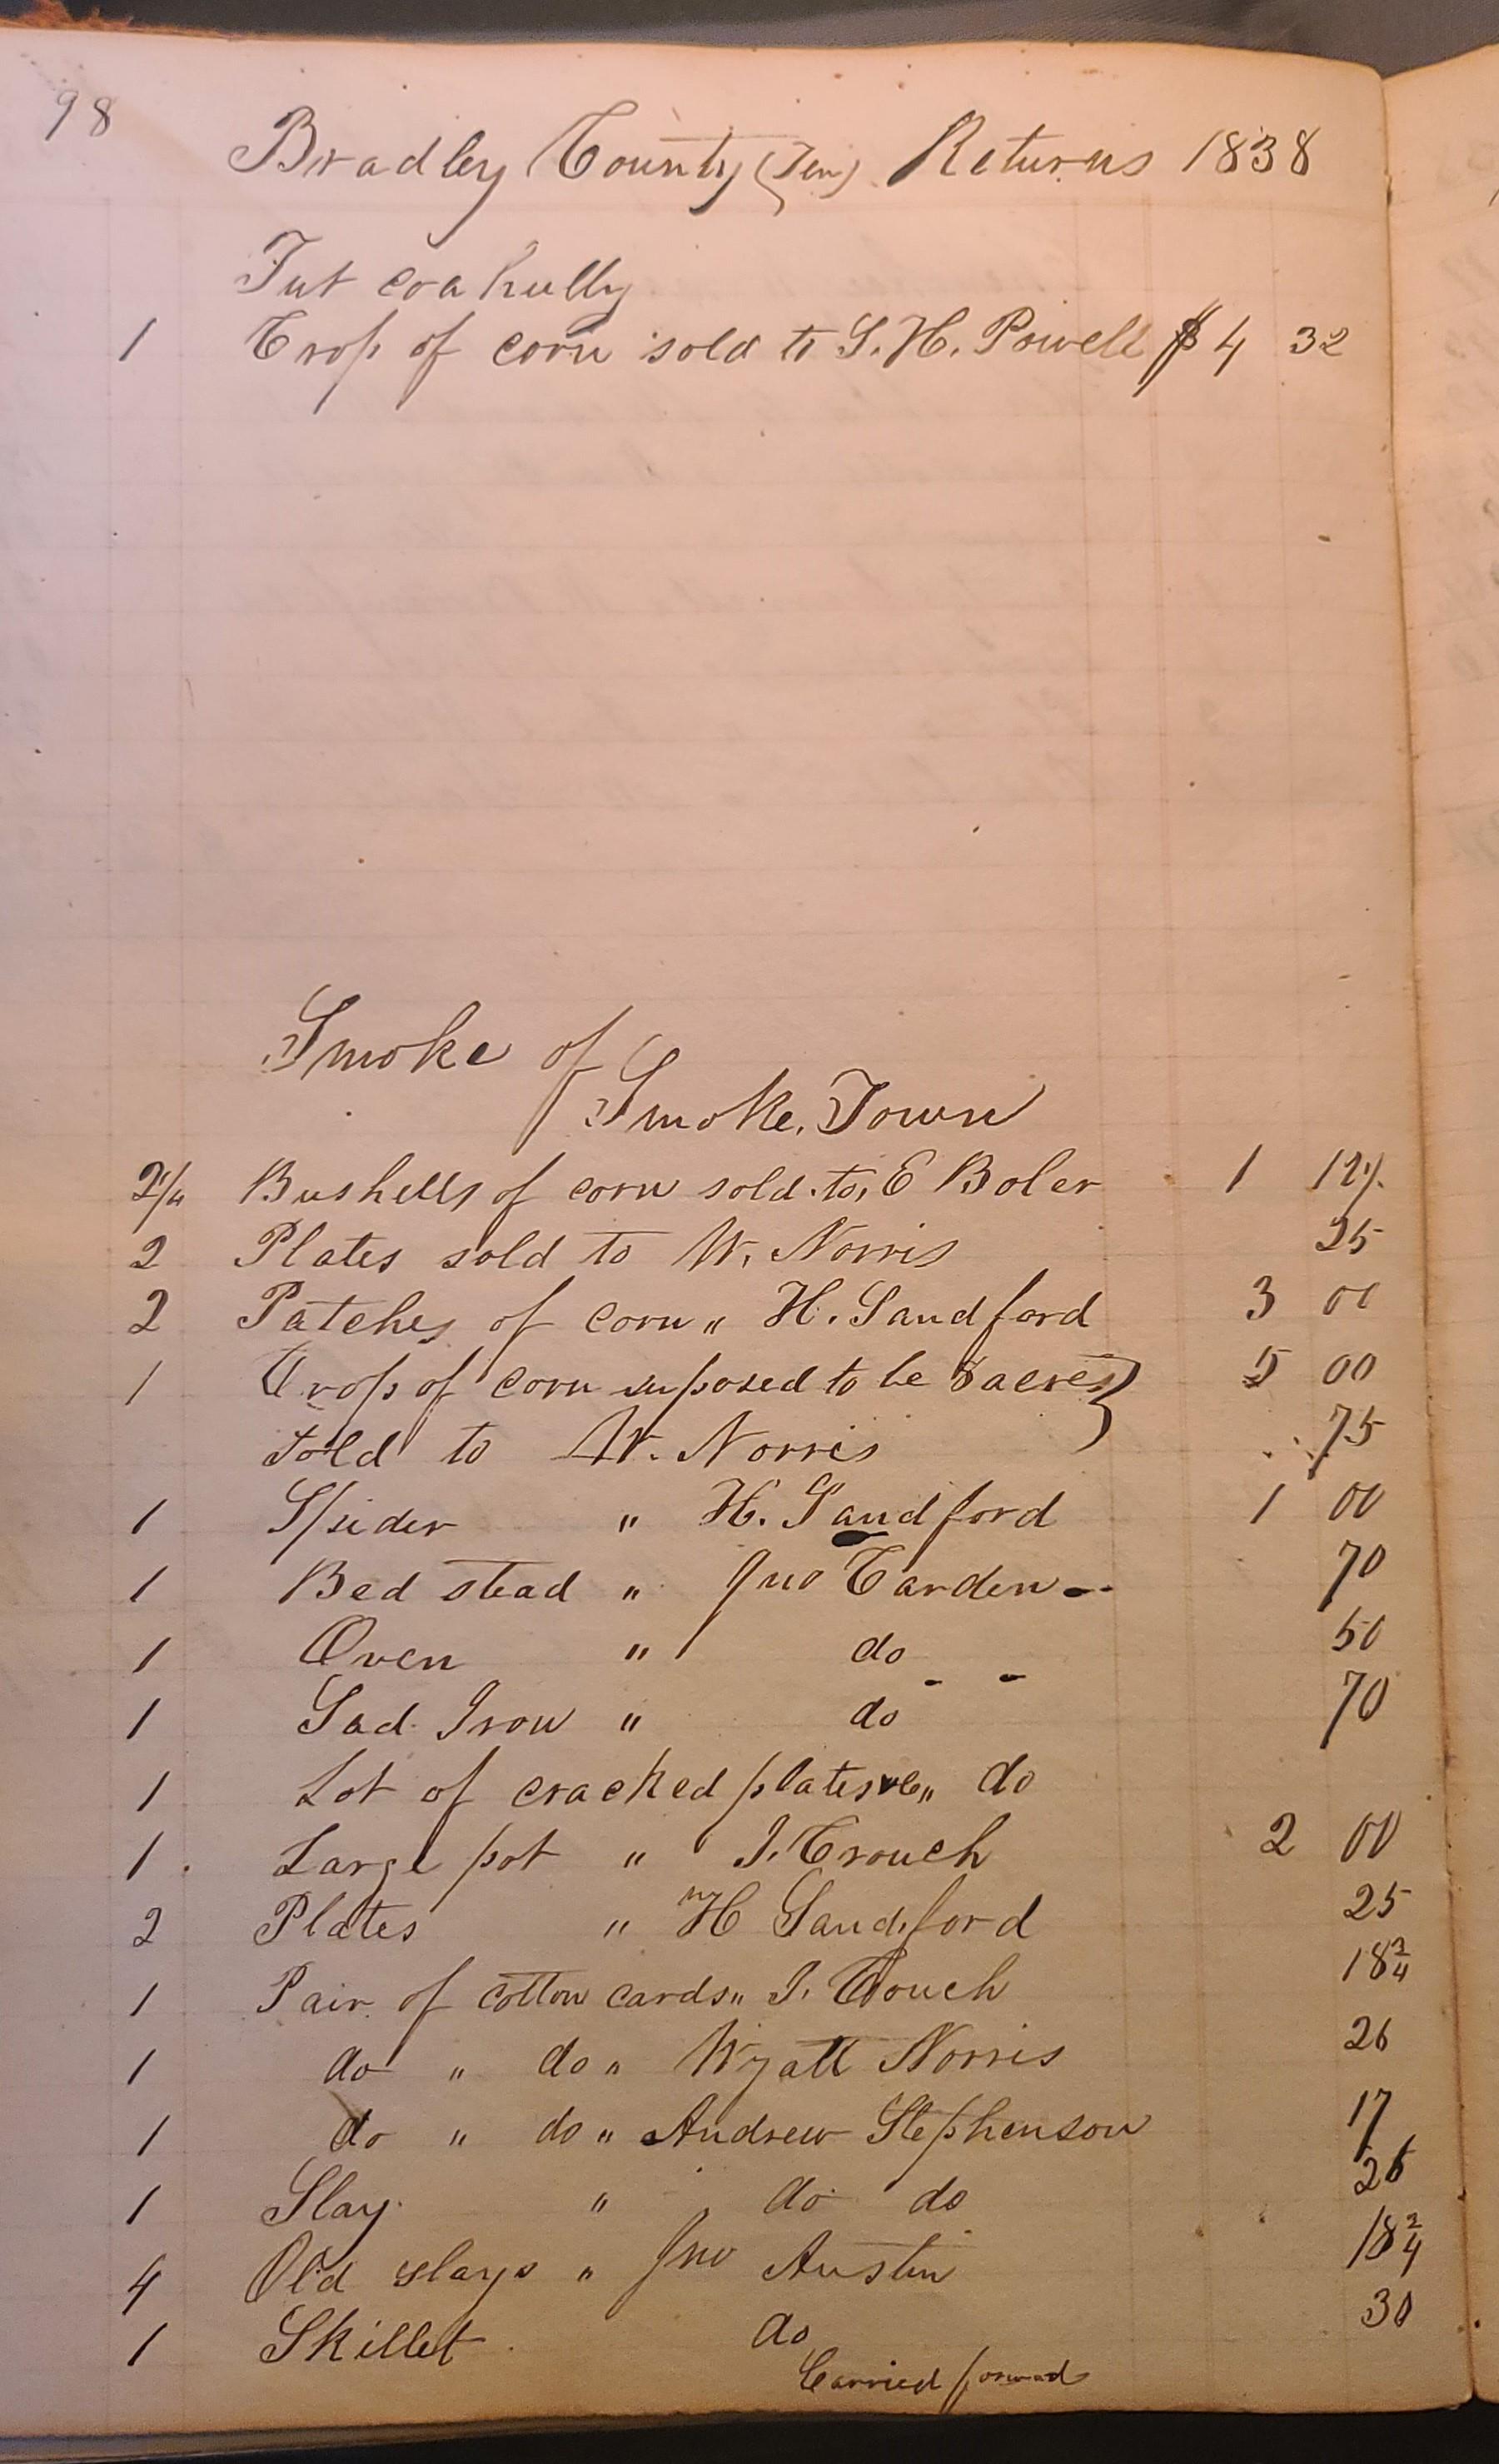 98
Bradley County (Ten) Returns 1838
Tut coa hully
1 Crop of corn sold to S. H. Powell $ 4 32
Smoke of
Smoke Town
2 1/4 Bushells of corn sold to E Boler 1 12 1/2
2 Plates sold to W. Norris 25
2 Patches of corn " H. Sandford 3 00
1 Crop of corn suposed to be 8 acres } 5 00
sold to W. Norris 75
1 Spider " H. Sandford 1 00
1 Bed stead " Jno Carden 70
1 Oven " do 50
1 Sad Iron " do 70
1 Lot of cracked plates &c " do
1 Large pot " J. Crouch 2 00
2 Plates " H Sandford 25
1 Pair of cotton cards " J. Crouch 18 3/4
1 do " do " Wyatt Norris 26
1 do " do " Andrew Stephenson 17
1 Slay " do do 26
4 Old slays " Jno Austin 18 3/4
1 Skillet do 30
Carried forward